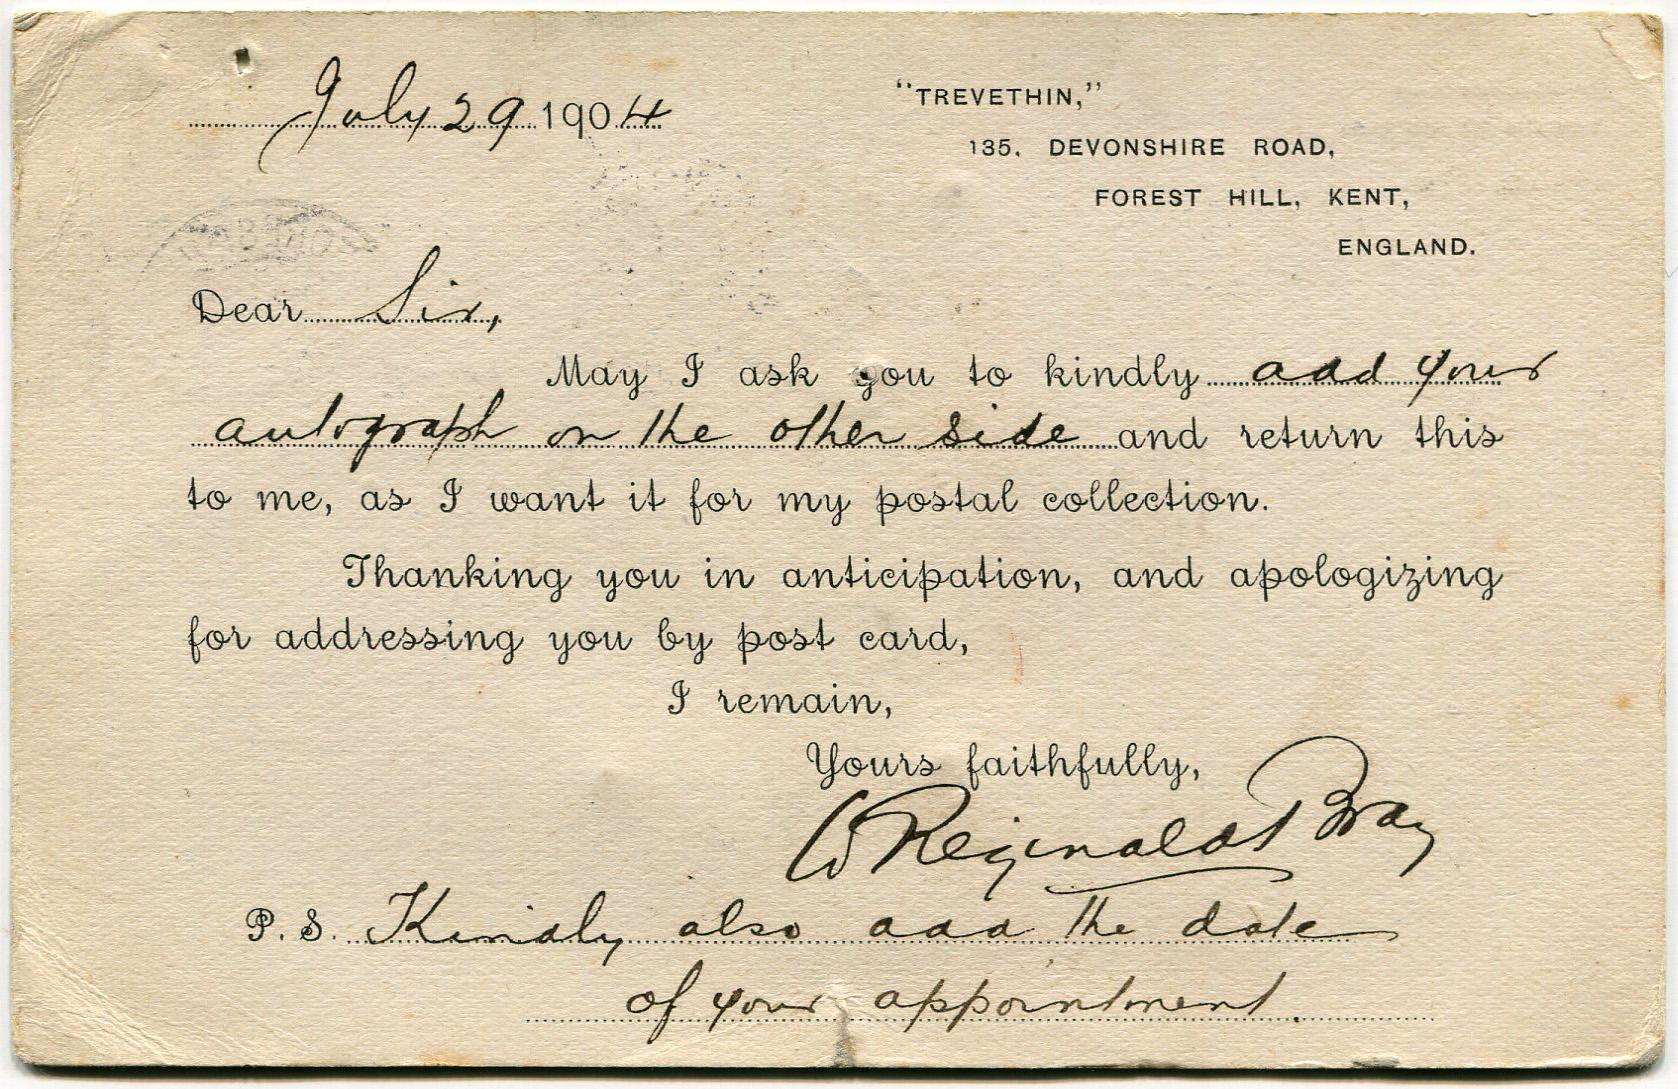 July 29 1904
"TREVETHIN,"
135, DEVONSHIRE ROAD,
FOREST HILL, KENT,
ENGLAND.
Dear Sir,
May I ask you to kindly add your
autograph on the other side and return this
to me, as I want it for my postal collection.
Thanking you in anticipation, and apologizing
for addressing you by post card,
I remain,
Yours faithfully,
W Reginald Bray
P. S. Kindly also add the date
of your appointment.